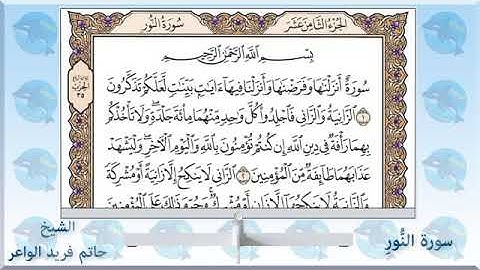 الجزء الثامن عشر
سورة النور
بِسْمِ اللَّهِ الرَّحْمَٰنِ الرَّحِيمِ
سُورَةٌ أَنزَلْنَاهَا وَفَرَضْنَاهَا وَأَنزَلْنَا فِيهَا ءَايَاتٍ بَيِّنَاتٍ لَّعَلَّكُمْ تَذَكَّرُونَ
١ الزَّانِيَةُ وَالزَّانِي فَاجْلِدُوا كُلَّ وَاحِدٍ مِّنْهُمَا مِائَةَ جَلْدَةٍ وَلَا تَأْخُذْكُم
بِهِمَا رَأْفَةٌ فِي دِينِ اللَّهِ إِن كُنتُمْ تُؤْمِنُونَ بِاللَّهِ وَالْيَوْمِ الْآخِرِ وَلْيَشْهَدْ
عَذَابَهُمَا طَائِفَةٌ مِّنَ الْمُؤْمِنِينَ ٢ الزَّانِي لَا يَنكِحُ إِلَّا زَانِيَةً أَوْ مُشْرِكَةً
وَالزَّانِيَةُ لَا يَنكِحُهَا إِلَّا زَانٍ أَوْ مُشْرِكٌ وَحُرِّمَ ذَٰلِكَ عَلَى الْمُؤْمِنِينَ
الشيخ
حاتم فريد الواعر
سورة النُّورِ